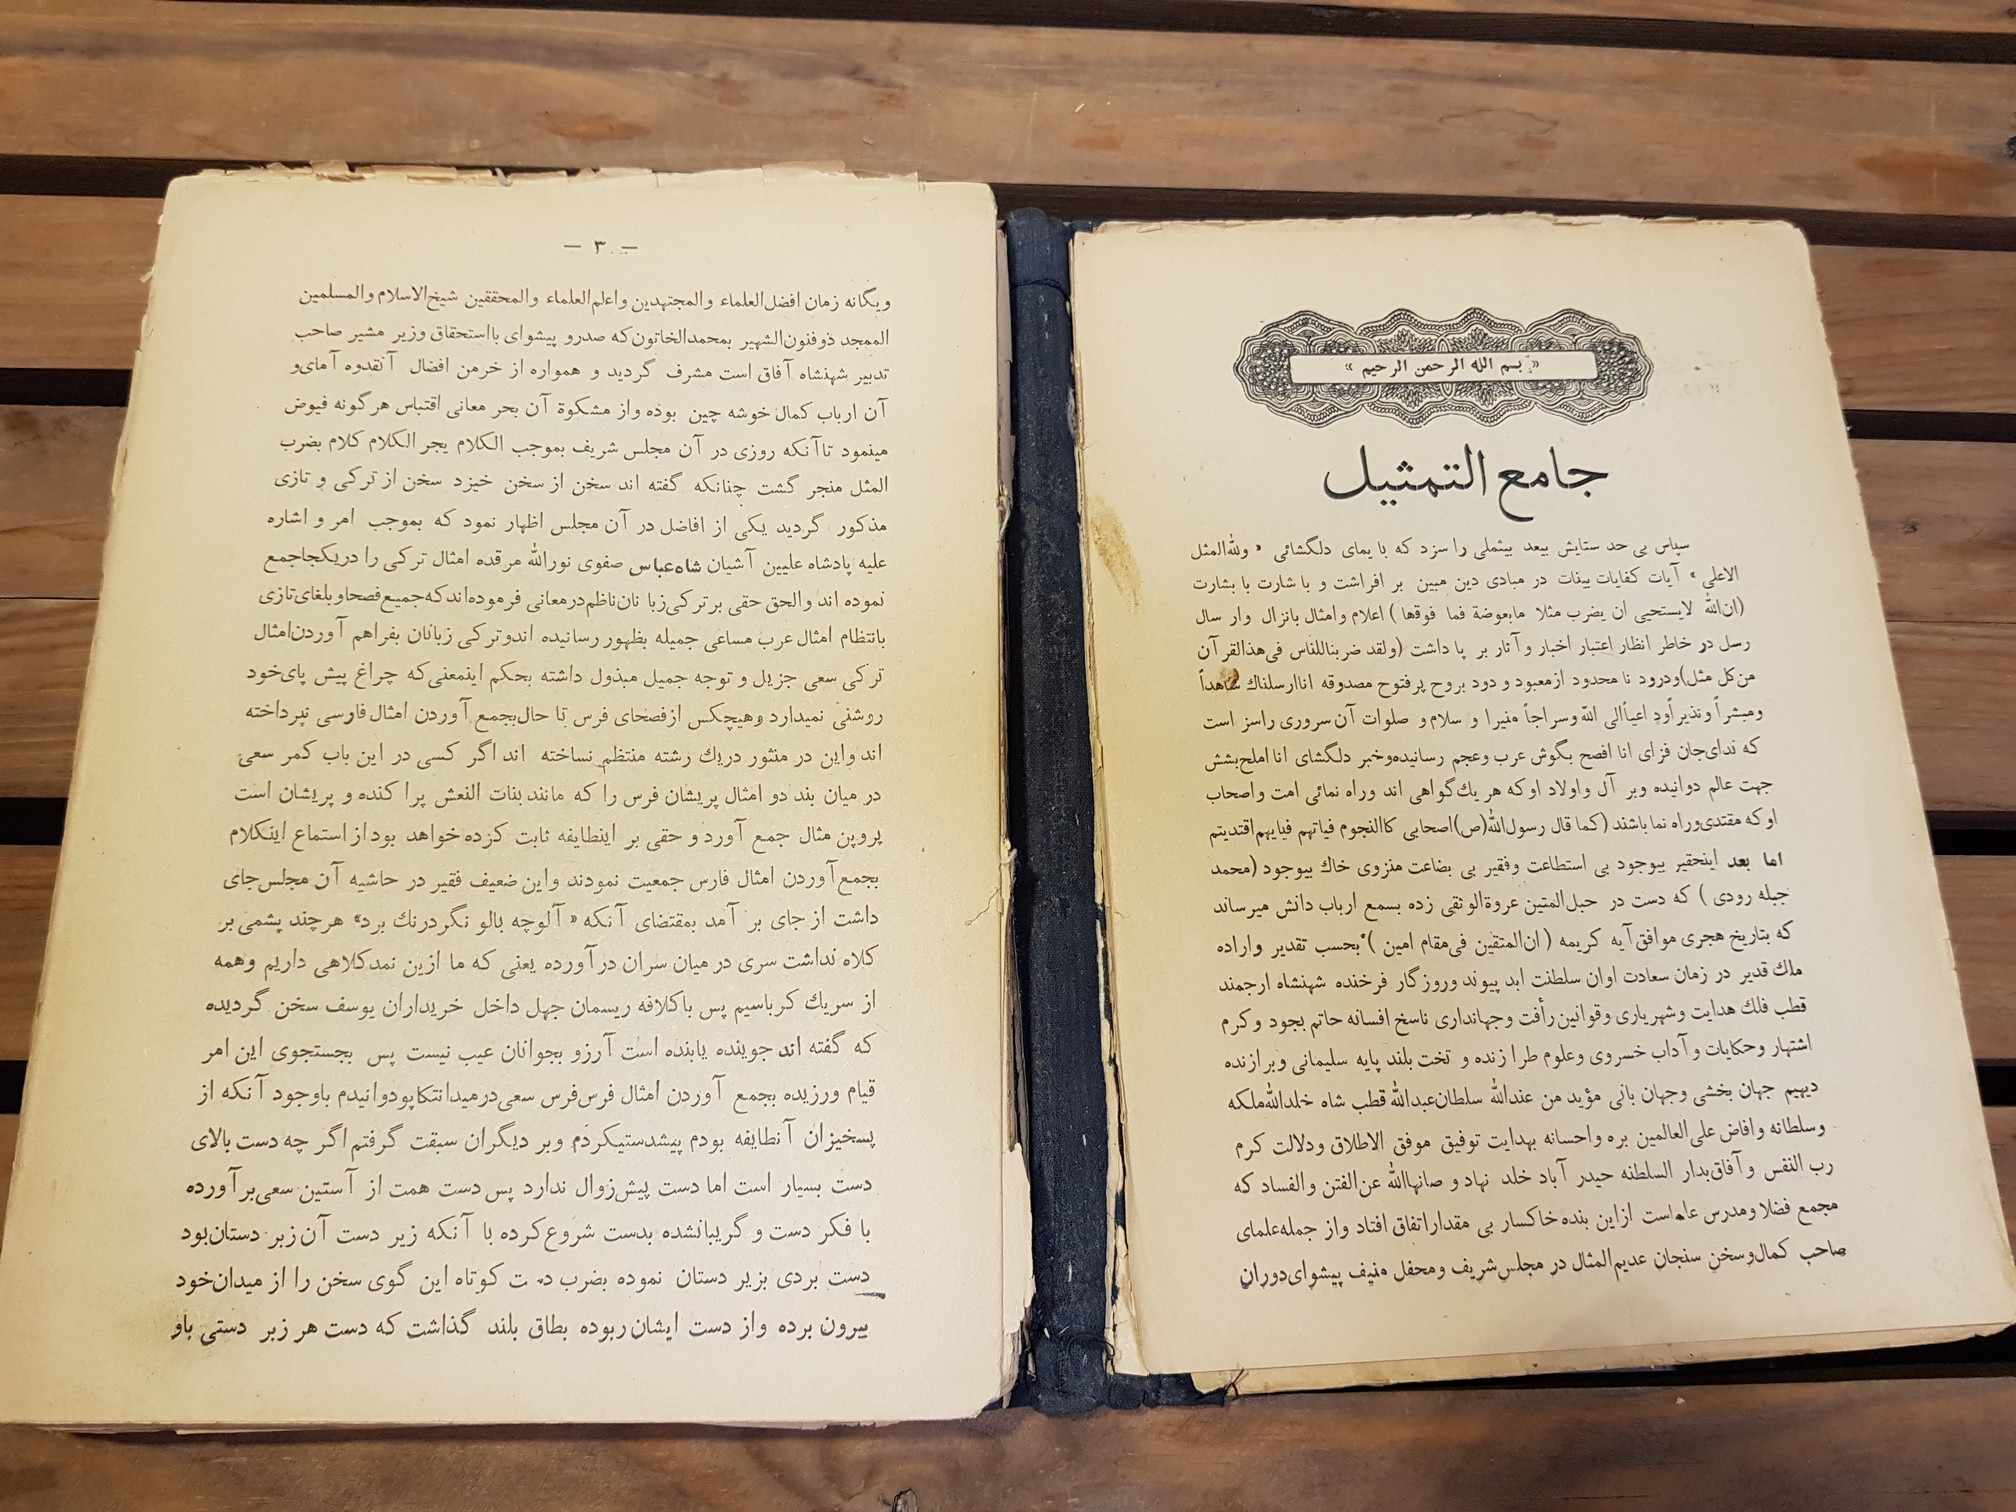 « بسم الله الرحمن الرحیم »
جامع التمثیل
سپاس بی حد ستایش بیعد بیثملی را سزد که با یمای دلگشائی « ولله‌المثل
الاعلی » آیات کفایات بینات در مبادی دین مبین بر افراشت و با شارت با بشارت
(ان‌الله لایستحیی ان یضرب مثلا مابعوضة فما فوقها ) اعلام وامثال بانزال وار سال
رسل در خاطر انظار اعتبار اخبار و آثار بر پا داشت (ولقد ضربناللناس فی‌هذالقرآن
من‌کل مثل)ودرود نا محدود ازمعبود و دود بروح پرفتوح مصدوقه اناارسلناك شاهداً
ومبشراً ونذیراًود اعیاًالی الله وسراجاً منیرا و سلام و صلوات آن سروری راسز است
که ندای‌جان فزای انا افصح بگوش عرب وعجم رسانیده‌وخبر دلگشای انا املح‌بشش
جهت عالم دوانیده وبر آل واولاد اوکه هر یك‌گواهی اند وراه نمائی امت واصحاب
اوکه مقتدی‌وراه نما باشند (کما قال رسول‌الله(ص)اصحابی کاالنجوم فباتهم فبایهم‌اقتدیتم
اما بعد اینحقیر بیوجود بی استطاعت وفقیر بی بضاعت منزوی خاك بیوجود (محمد
جبله رودی ) که دست در حبل‌المتین عروةالوثقی زده بسمع ارباب دانش میرساند
که بتاریخ هجری موافق‌آیه کریمه ( ان‌المتقین فی‌مقام امین ) بحسب تقدیر واراده
ملك قدیر در زمان سعادت اوان سلطنت ابد پیوند وروزگار فرخنده شهنشاه ارجمند
قطب فلك هدایت وشهریاری وقوانین‌رأفت وجهانداری ناسخ افسانه حاتم بجود و کرم
اشتهار وحکایات و آداب خسروی وعلوم طرا زنده و تخت بلند پایه سلیمانی وبرازنده
دیهیم جهان بخشی وجهان بانی مؤید من عندالله سلطان‌عبدالله قطب شاه خلدالله‌ملکه
وسلطانه وافاض علی‌العالمین بره واحسانه بهدایت توفیق موفق الاطلاق ودلالت کرم
رب النفس و آفاق‌بدار السلطنه حیدر آباد خلد نهاد و صانهاالله عن‌الفتن والفساد که
مجمع فضلا ومدرس علماست ازاین بنده خاکسار بی مقداراتفاق افتاد واز جمله‌علمای
صاحب کمال‌وسخن سنجان عدیم‌المثال در مجلس‌شریف ومحفل منیف پیشوای‌دوران
— ۳ —
ویگانه زمان افضل‌العلماء والمجتهدین واعلم‌العلماء والمحققین شیخ‌الاسلام والمسلمین
الممجد ذوفنون‌الشهیر بمحمدالخاتون‌که صدرو پیشوای بااستحقاق وزیر مشیر صاحب
تدبیر شهنشاه آفاق است مشرف گردید و همواره از خرمن افضال آنقدوه آمای‌و
آن ارباب کمال خوشه چین بوده واز مشکوة آن بحر معانی اقتباس هرگونه فیوض
مینمود تاآنکه روزی در آن مجلس شریف بموجب الکلام یجر الکلام کلام بضرب
المثل منجر گشت چنانکه گفته اند سخن از سخن خیزد سخن از ترکی و تازی
مذکور گردید یکی از افاضل در آن مجلس اظهار نمود که بموجب امر و اشاره
علیه پادشاه علیین آشیان شاه‌عباس صفوی نورالله مرقده امثال ترکی را دریکجاجمع
نموده اند والحق حقی برترکی‌زبا نان‌ناظم‌درمعانی فرموده‌اندکه‌جمیع‌فصحاوبلغای‌تازی
بانتظام امثال عرب مساعی جمیله بظهور رسانیده اندوترکی زبانان بفراهم آوردن‌امثال
ترکی سعی جزیل و توجه جمیل مبذول داشته بحکم اینمعنی‌که چراغ پیش پای‌خود
روشنی نمیدارد وهیچکس ازفصحای فرس تا حال‌بجمع آوردن امثال فارسی نپرداخته
اند واین در منثور دریك رشته منتظم نساخته اند اگر کسی در این باب کمر سعی
در میان بند دو امثال پریشان فرس را که مانند بنات النعش پرا کنده و پریشان است
پروین مثال جمع آورد و حقی بر اینطایفه ثابت کرده خواهد بود از استماع اینکلام
بجمع آوردن امثال فارس جمعیت نمودند واین ضعیف فقیر در حاشیه آن مجلس‌جای
داشت از جای بر آمد بمقتضای آنکه « آلوچه بالو نگردرنك برد» هرچند پشمی بر
کلاه نداشت سری در میان سران درآورده یعنی که ما ازین نمدکلاهی داریم وهمه
از سریك کرباسیم پس باکلافه ریسمان جهل داخل خریداران یوسف سخن گردیده
که گفته اند جوینده یابنده است آرزو بجوانان عیب نیست پس بجستجوی این امر
قیام ورزیده بجمع آوردن امثال فرس‌فرس سعی‌درمیدانتکاپودوانیدم باوجود آنکه از
پسخیزان آنطایفه بودم پیشدستیکردم وبر دیگران سبقت گرفتم اگر چه دست بالای
دست بسیار است اما دست پیش‌زوال ندارد پس دست همت از آستین سعی‌برآورده
با فکر دست و گریبانشده بدست شروع کرده با آنکه زیر دست آن زبر دستان‌بود
دست بردی بزیر دستان نموده بضرب دست کوتاه این گوی سخن را از میدان‌خود
بیرون برده واز دست ایشان ربوده بطاق بلند گذاشت که دست هر زبر دستی باو